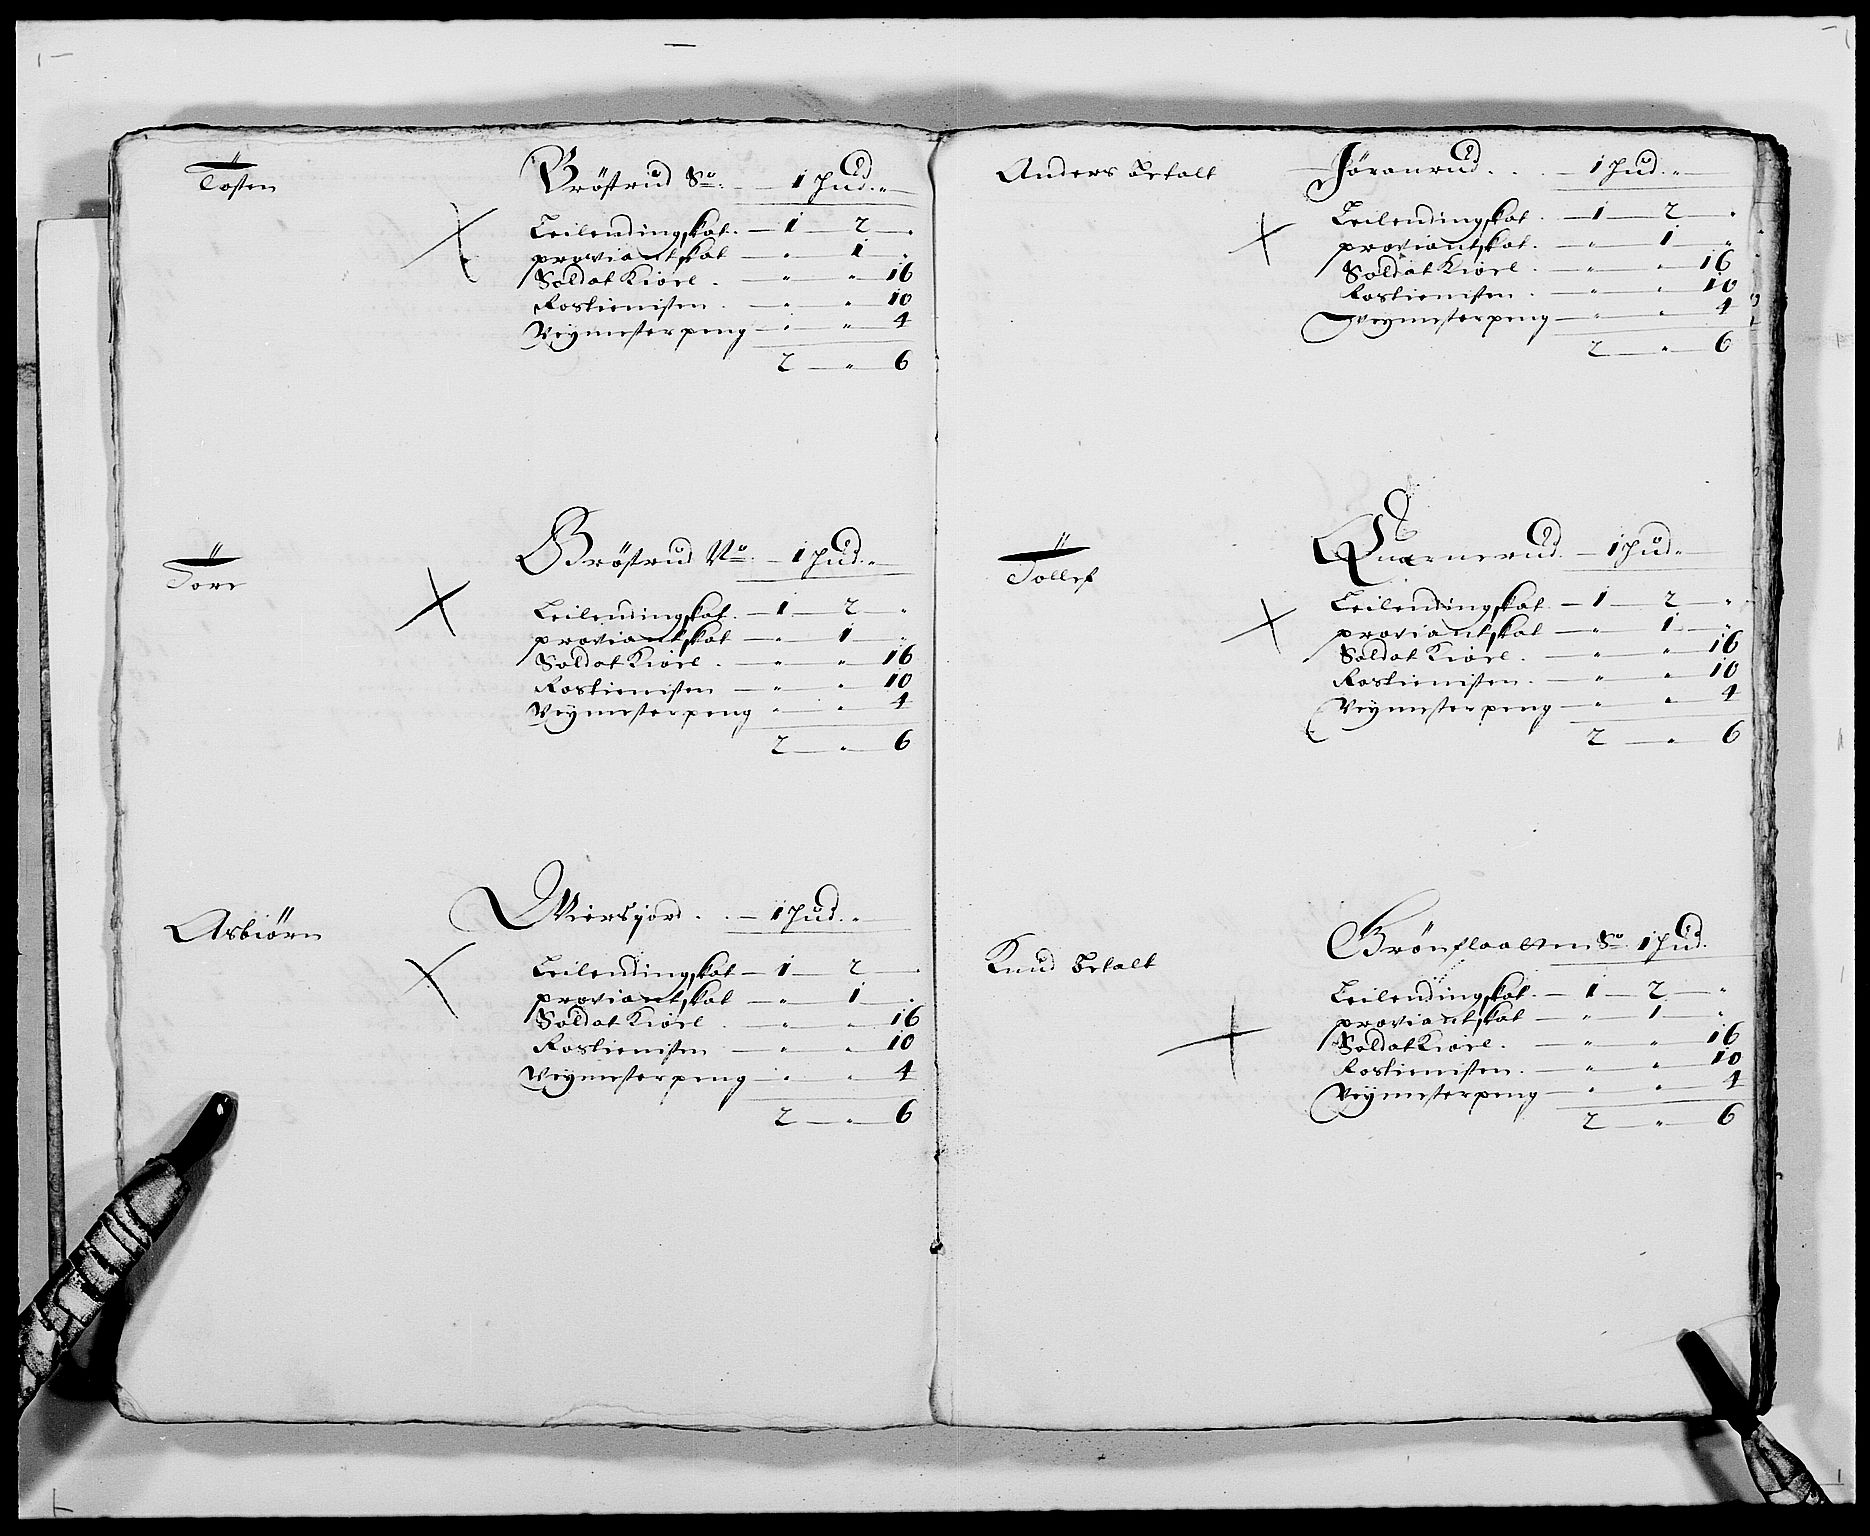 Tosten
Bröstrud Sø. — 1 Hud. „
Leilendingskat. — 1 — 2 — „
proviantskat — „ 1 „
Soldat Kiöel. — „ „ 16
Rostienisten — „ „ 10
Veymesterpeng — „ „ 4
2 — „ — 6
Tore
Bröstrud No. — 1 Hud. „
Leilendingskat. — 1 — 2 — „
proviantskat — „ 1 „
Soldat Kiöel. — „ „ 16
Rostienisten — „ „ 10
Veymesterpeng „ „ 4
2 — „ — 6
Asbiörn
Wiersjord. — 1 Hud. „
Leilendingskat — 1 — 2 — „
proviantskat — „ 1 „
Soldat Kiöel. — „ „ 16
Rostienisten — „ „ 10
Veymesterpeng — „ „ 4
2 — „ — 6
Anders betalt
Jöranrud. . . 1 Hud. „
Leilendingskat. — 1 — 2 „
proviantskat. — „ 1 „
Soldat Kiöel. — „ „ 16
Rostienisten. — „ „ 10
Veymesterpeng — „ „ 4
2 — „ — 6
Tollef
Quernerud. — 1 Hud „
Leilendingskat. — 1 — 2 — „
proviantskat — „ 1 „
Soldat Kiöel. — „ „ 16
Rostienisten. — „ „ 10
Veymesterpeng — „ „ 4
2 — „ — 6
Knud betalt
Grönflaatten Sø 1 Hud.
Leilendingskat. — 1 — 2 — „
proviantskat — „ 1 „
Soldat Kiöel. — „ „ 16
Rostienisten. — „ „ 10
Veymesterpeng — „ „ 4
2 — „ — 6